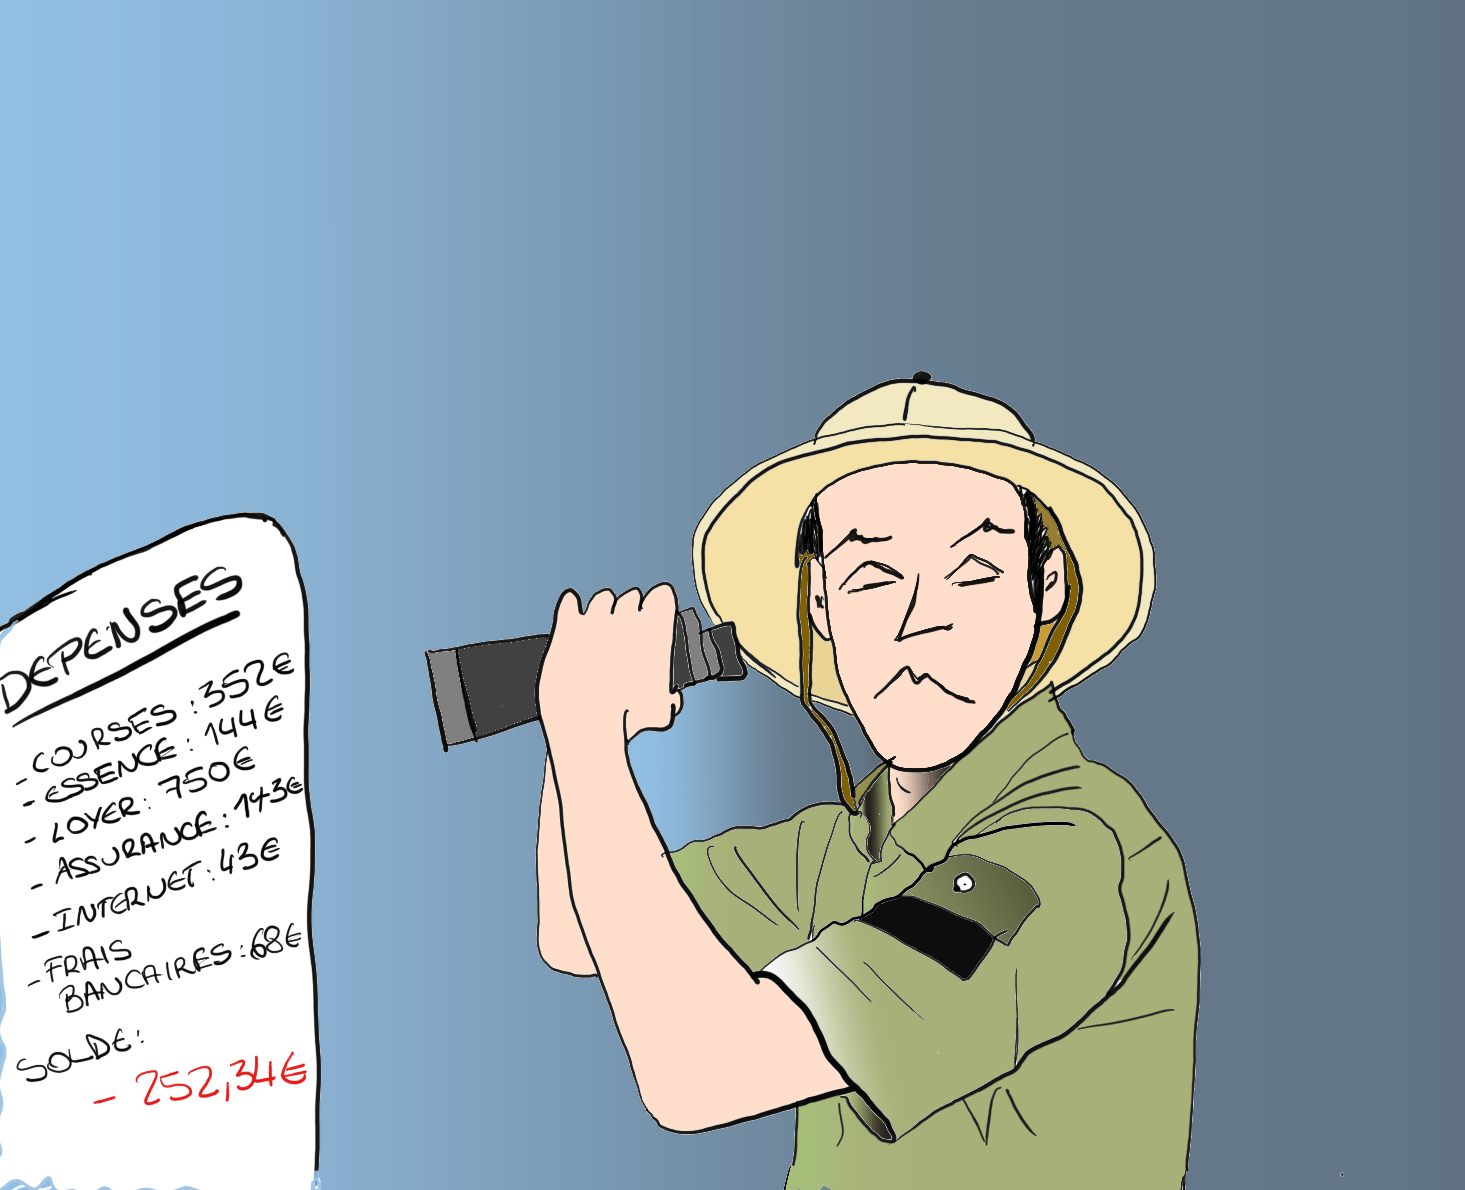 DEPENSES
- COURSES : 352€
- ESSENCE : 144€
- LOYER : 750€
- ASSURANCE : 143€
- INTERNET : 43€
- FRAIS
BANCAIRES : 68€
SOLDE :
- 252,34€